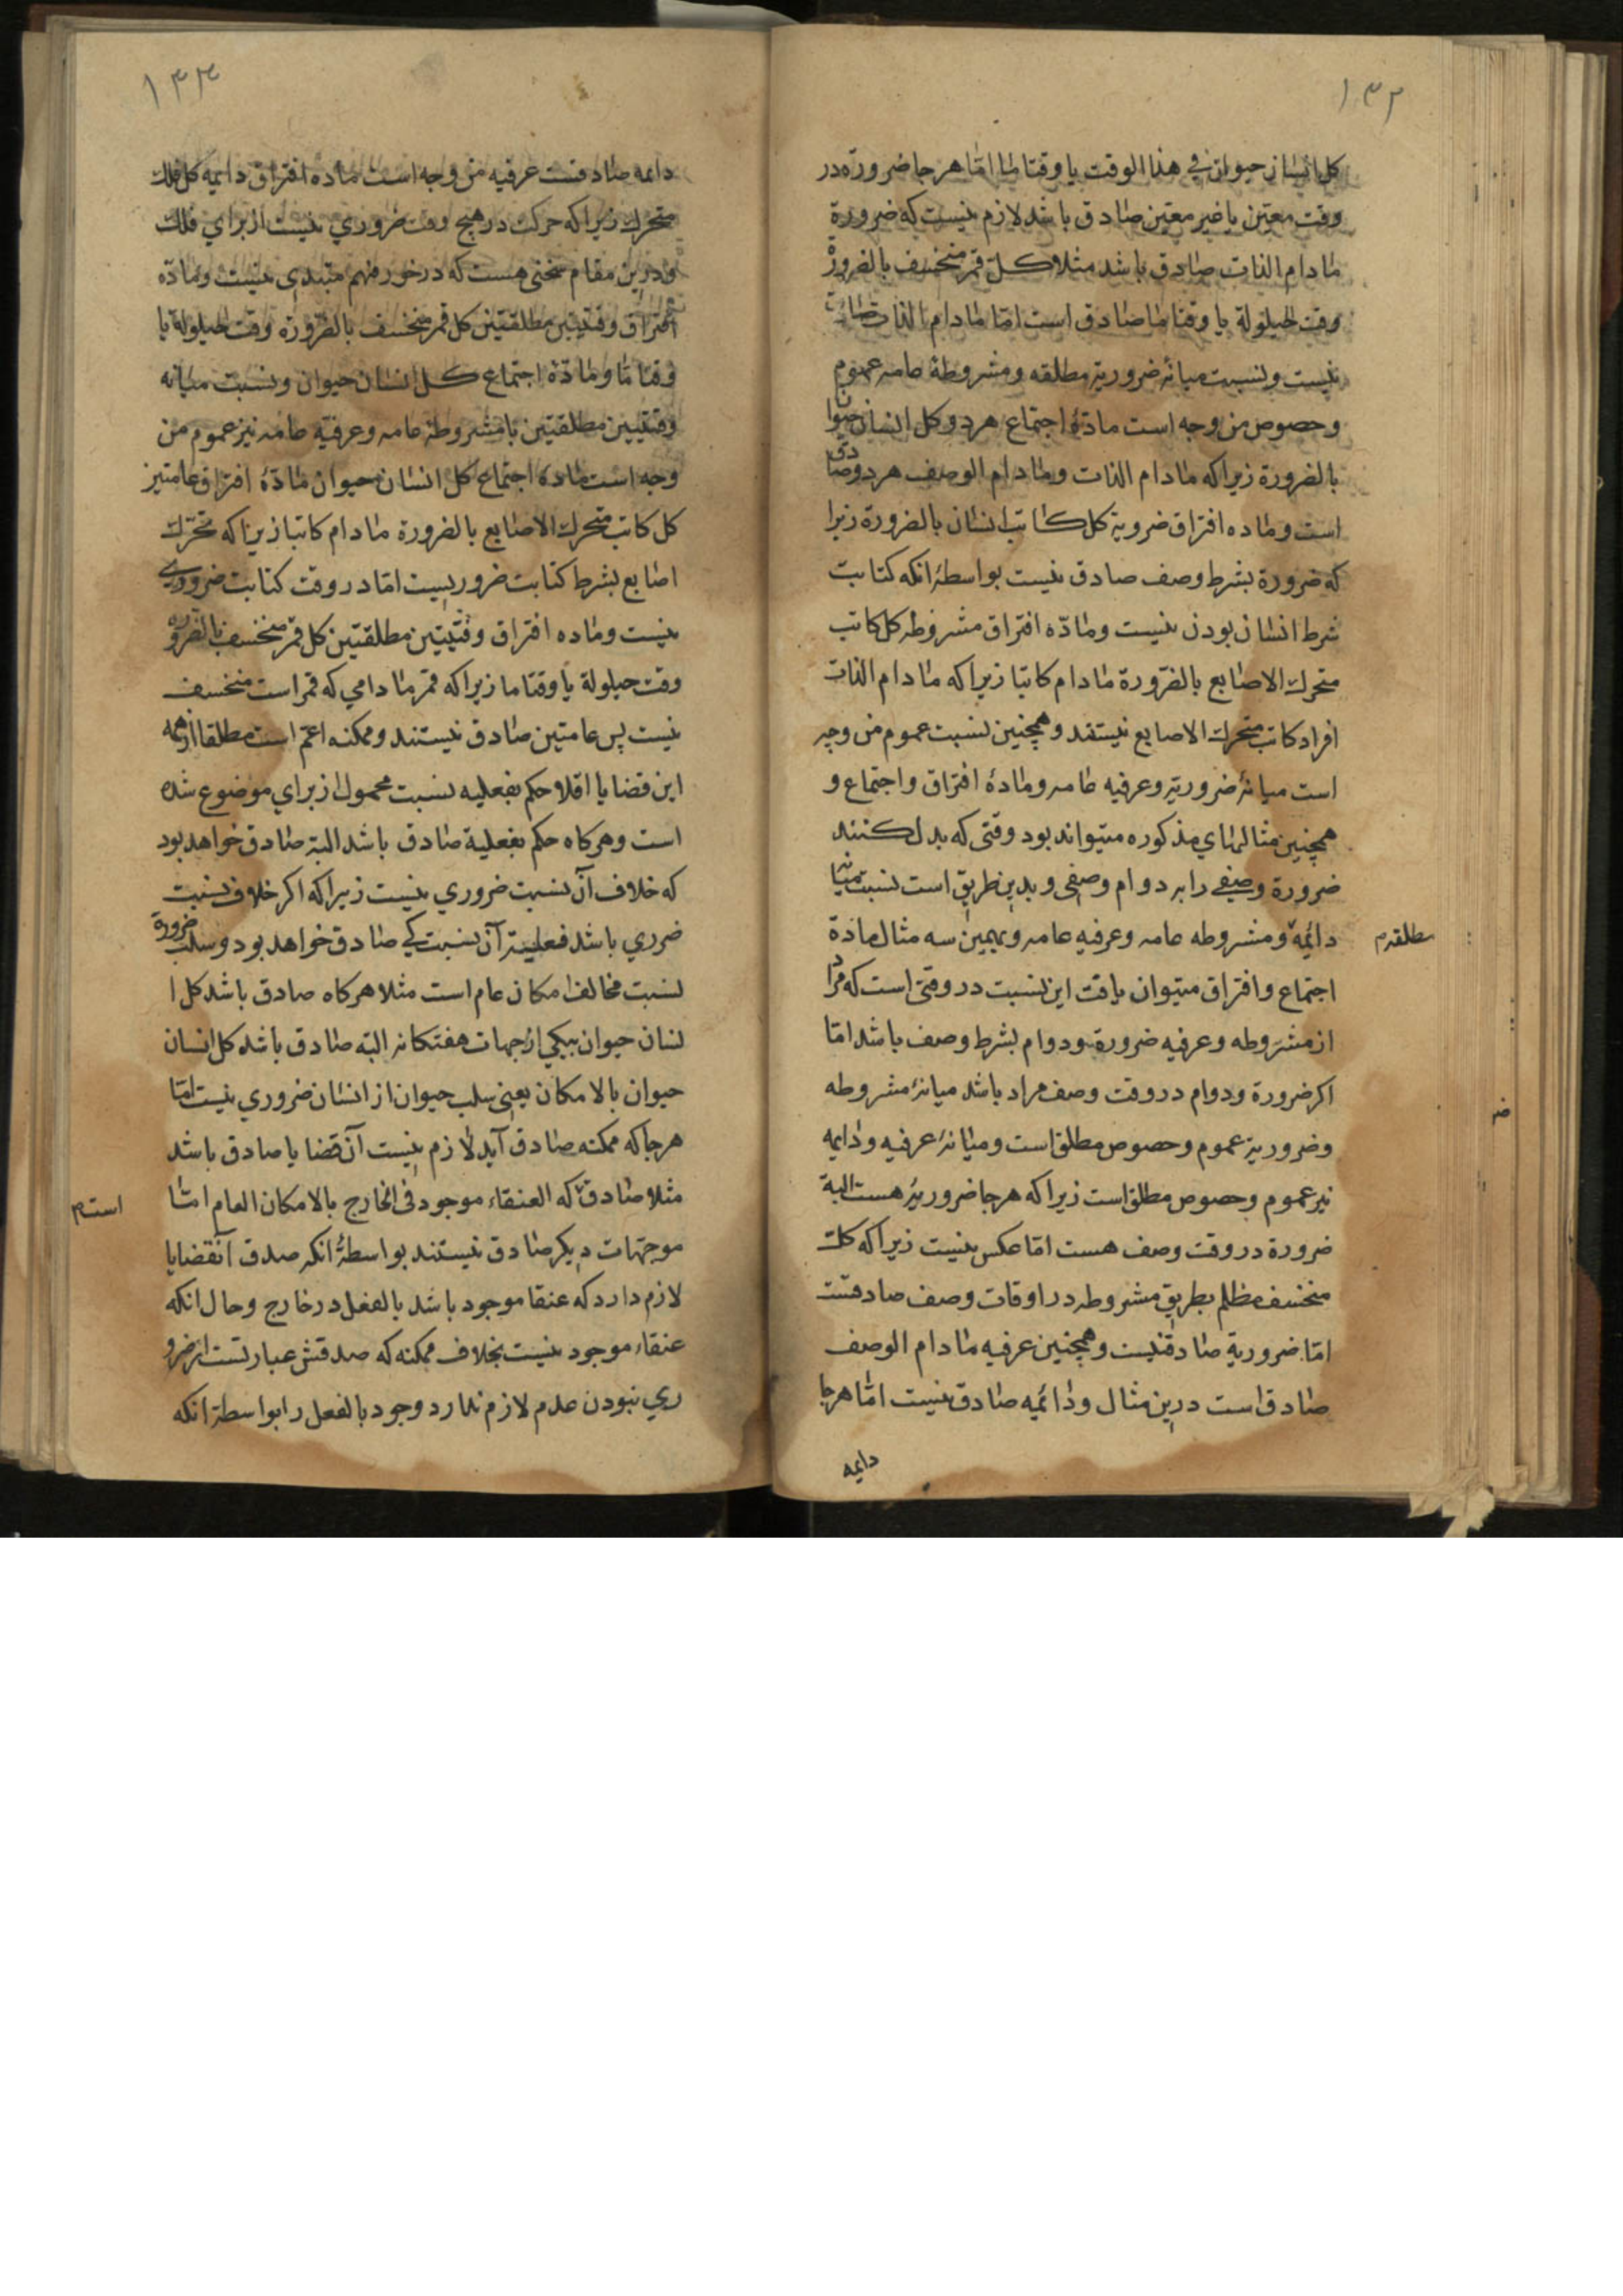 ۱۳۲
کل انسان حیوان فی هذا الوقت یا وقتاما امّا هرجا ضرورة در
وقت معین یا غیر معین صادق باشد لازم نیست که ضرورة
مادام الذات صادق باشد مثلا کلّ قمر منخسف بالضرورة
وقت الحیلولة یا وقتاما صادق است امّا مادام الذات صادق
نیست ونسبت میانهٔ ضروریة مطلقه ومشروطهٔ عامه عموم
وخصوص من وجه است مادهٔ اجتماع هردو کل انسان حیوان
بالضرورة زیرا که مادام الذات ومادام الوصف هردو صادق
است وماده افتراق ضرویة کل کاتب انسان بالضرورة زیرا
که ضرورة بشرط وصف صادق نیست بواسطهٔ انکه کتابت
شرط انسان بودن نیست ومادّه افتراق مشروطه کل کاتب
متحرك الاصابع بالضرورة مادام کاتبا زیرا که مادام الذات
افراد کاتب متحرك الاصابع نیستند وهمچنین نسبت عموم من وجه
است میانهٔ ضروریة وعرفیه عامه ومادهٔ افتراق واجتماع و
همچنین مثالهای مذکوره میتواند بود وقتی که بدل کنند
ضرورة وصفی را بر دوام وصفی وبدین طریق است نسبت میانهٔ
دائمه ومشروطه عامه وعرفیه عامه وبهمین سه مثال مادة
مطلقه م
اجتماع وافتراق میتوان یافت این نسبت در وقتی است که مراد
از مشروطه وعرفیه ضرورة ودوام بشرط وصف باشد امّا
اکر ضرورة ودوام در وقت وصف مراد باشد میانهٔ مشروطه
وضروریة عموم وخصوص مطلق است ومیانهٔ عرفیه ودایمه
نیز عموم وخصوص مطلق است زیرا که هرجا ضروریة هست البة
ضرورة در وقت وصف هست امّا عکس نیست زیرا که کل
منخسف مظلم بطریق مشروطه در اوقات وصف صادقست
امّا ضروریة صادق نیست وهمچنین عرفیه مادام الوصف
صادق است درین مثال ودائمیه صادق نیست امّا هرجا
دایمه
۱۳۳
دائمه صادقست عرفیه من وجه است ماده افتراق دایمه کل فلك
متحرك زیرا که حرکت در هیچ وقت ضروری نیست از برای فلك
ودرین مقام سخنی هست که در خور فهم مبتدی نیست ومادّه
افتراق وقتیتین مطلقتین کل قمر منخسف بالضرورة وقت الحیلولة یا
وقتا مّا ومادّهٔ اجتماع کل انسان حیوان ونسبت میانه
وقتیتین مطلقتین با مشروطهٔ عامه وعرفیه عامه نیز عموم من
وجه است ماده اجتماع کل انسان حیوان مادّهٔ افتراق عامتین
کل کاتب متحرك الاصابع بالضرورة مادام کاتبا زیرا که تحرّك
اصابع بشرط کتابت ضروریست امّا در وقت کتابت ضروری
نیست وماده افتراق وقتیتین مطلقتین کل قمر منخسف بالضروره
وقت حیلولة یا وقتاما زیرا که قمر مادامی که قمر است منخسف
نیست پس عامتین صادق نیستند وممکنه اعمّ است مطلقا ازهمه
این قضایا اقلا حکم بفعلیه نسبت محمول از برای موضوع شده
است وهرکاه حکم بفعلیة صادق باشد البتة صادق خواهد بود
که خلاف آن نسبت ضروری نیست زیرا که اکر خلاف نسبت
ضرری باشد فعلیة آن نسبت کی صادق خواهد بود وسلب ضرورة
نسبت مخالف امکان عام است مثلا هرکاه صادق باشد کل ا
نسان حیوان بیکی از جهات هفتکانه البته صادق باشد کل انسان
حیوان بالامکان یعنی سلب حیوان از انسان ضروری نیست امّا
هرجا که ممکنه صادق آید لازم نیست آن قضایا صادق باشد
مثلا صادق که العنقاء موجود فی الخارج بالامکان العام امّا
است م
موجّهات دیکر صادق نیستند بواسطهٔ انکه صدق آنقضایا
لازم دارد که عنقا موجود باشد بالفعل در خارج وحال انکه
عنقاء موجود نیست بخلاف ممکنه که صدقش عبارتست از ضرو
ری نبودن عدم لازم ندارد وجود بالفعل را بواسطه انکه